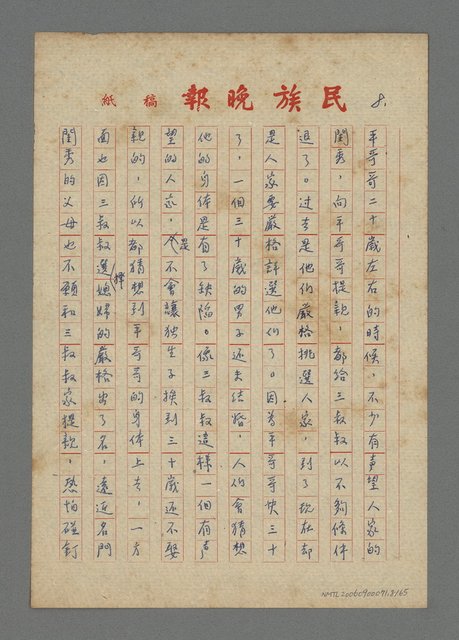 民族晚報 稿紙
8.
平哥哥二十歲左右的時候,不少有声望人家的
閨秀,向平哥哥提親,都給三叔叔以不夠條件
退了。过去是他们嚴格挑選人家,到了現在却
是人家要嚴格評選他们了。因為平哥哥快三十
了,一個三十歲的男子还未结婚,人们會猜想
他的身体是有了缺陷。像三叔叔這樣一個有声
望的人家,是不會讓独生子挨到三十歲还不娶
親的,所以都猜想到平哥哥的身体上去,一方
面也因三叔叔選擇媳婦的嚴格出了名,遠近名門
閨秀的父母也不願和三叔叔家提親,恐怕碰釘
NMTL20060900091.8/65